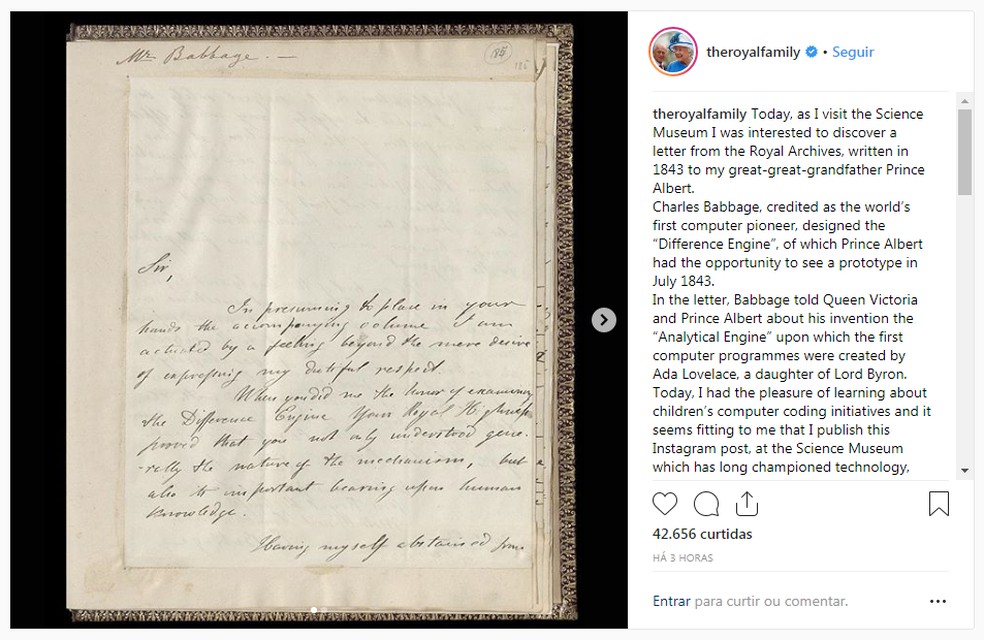 Mr Babbage. —
Sir,
In presuming to place in your
hands the accompanying volume I am
actuated by a feeling beyond the mere desire
of expressing my dutiful respect.
When you did me the honor of examining
the Difference Engine Your Royal Highness
proved that you not only understood gene-
-rally the nature of the mechanism, but
also its important bearing upon human
knowledge.
Having myself abstained from
theroyalfamily • Seguir
theroyalfamily Today, as I visit the Science
Museum I was interested to discover a
letter from the Royal Archives, written in
1843 to my great-great-grandfather Prince
Albert.
Charles Babbage, credited as the world’s
first computer pioneer, designed the
“Difference Engine”, of which Prince Albert
had the opportunity to see a prototype in
July 1843.
In the letter, Babbage told Queen Victoria
and Prince Albert about his invention the
“Analytical Engine” upon which the first
computer programmes were created by
Ada Lovelace, a daughter of Lord Byron.
Today, I had the pleasure of learning about
children’s computer coding initiatives and it
seems fitting to me that I publish this
Instagram post, at the Science Museum
which has long championed technology,
42.656 curtidas
HÁ 3 HORAS
Entrar para curtir ou comentar.